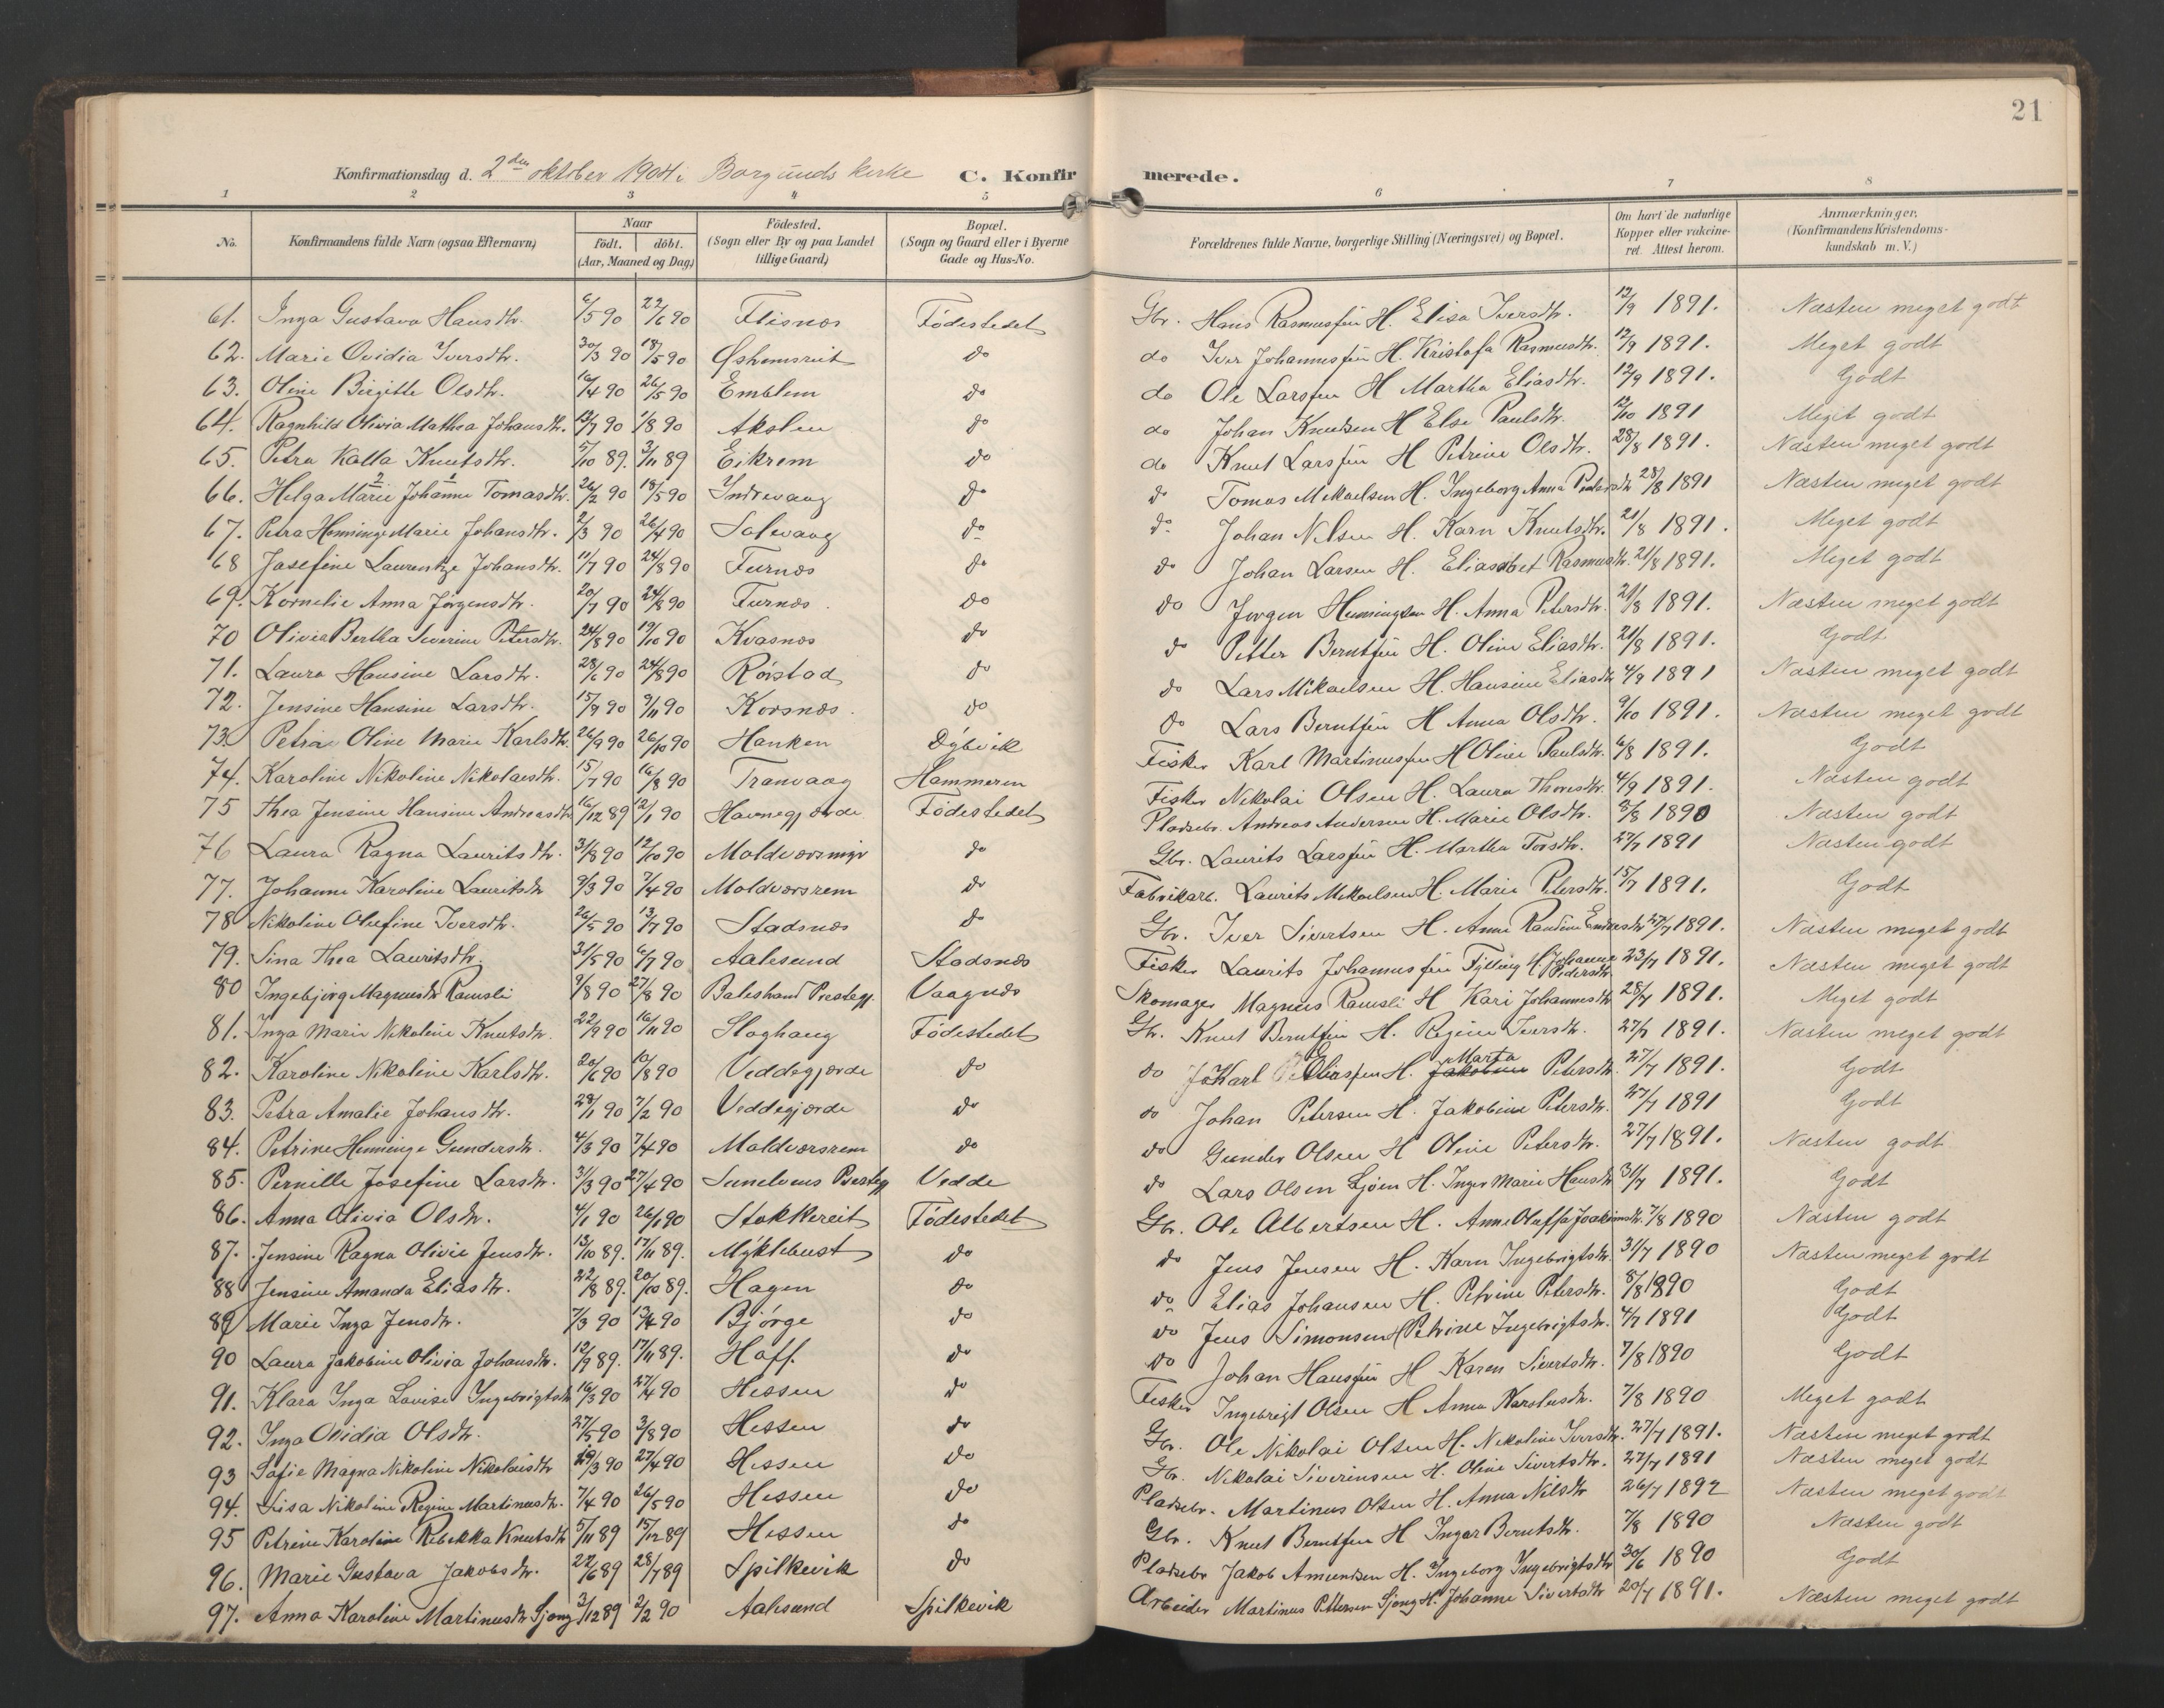 21
Konfirmationsdag d. 2den oktober 1904 i Borgunds kirke C. Konfirmerede.
1 2 3 4 5 6 7 8
No. Konfirmandens fulde Navn (ogsaa Efternavn) Naar født. døbt. (Aar, Maaned og Dag) Fødested. (Sogn eller By og paa Landet tillige Gaard) Bopæl. (Sogn og Gaard eller i Byerne Gade og Hus-No. Forældrenes fulde Navne, borgerlige Stilling (Næringsvei) og Bopæl. Om havt de naturlige Kopper eller vakcineret. Attest herom. Anmærkninger. (Konfirmandens Kristendomskundskab m. V.)
61. Inga Gustava Hansdtr. 6/5 90 22/6 90 Flisnes Fødestedet Gbr. Hans Rasmussen H. Elisa Iversdtr. 12/9 1891. Næsten meget godt
62. Marie Ovidia Iversdtr. 30/3 90 18/5 90 do do Iver Johannessen H. Kristofa Rasmusdtr. 12/9 1891. Meget godt
63. Oline Birgitte Olsdtr. 16/4 90 26/5 90 Emblem do do Ole Larssen H Martha Eliasdtr. 12/9 1891. Godt
64. Ragnhild Olivia Mathea Johansdtr. 13/7 90 1/8 90 Akslen do do Johan Knudsen H Else Paulsdtr. 12/10 1891 Meget godt
65. Petra Kalla Knutsdtr. 5/10 89. 3/11 89 Eikrem do do Knut Larssen H Petrine Olsdtr. 28/8 1891. Næsten meget godt
66. Helga Marie Johanne Tomasdtr. 26/2 90 18/5 90 Indrevaag do do Tomas Mikaelsen H. Ingeborg Anna 28/8 1891 Næsten meget godt
67. Petra Henninge Marie Johansdtr. 2/3 90 26/4 90 Solevaag do do Johan Nilsen H. Karn Knutsdtr. 21/8 1891. Meget godt
68 Josefine Laurentze Johansdtr. 11/7 90 24/8 90 Furnes do do Johan Larsen H. Eliasabet Rasmusdtr. 21/8 1891. Meget godt
69. Kornelie Anna Jørgensdtr. 20/7 90 24/8 90 Furnes. do do Jørgen Henningsen H. Anna Petersdtr. 21/8 1891. Næsten meget godt
70 Olivia Bertha Severine Petersdtr. 24/8 90 19/10 90 Kvasnes do do Petter Berntsen H. Oline Eliasdtr. 21/8 1891. Godt
71. Laura Hansine Larsdtr. 28/6 90 24/8 90 Rørstad do do Lars Mikaelsen H. Hansine Eliasdtr 4/9 1891 Næsten meget godt
72. Jensine Hansine Larsdtr. 15/9 90 9/11 90 Korsnes. do do Lars Berntsen H Anna Olsdtr. 9/10 1891. Næsten meget godt
73. Petra Oline Marie Karlsdtr. 26/9 90 26/10 90 Hanken Dybvik Fisker Karl Martinussen H Oline Paulsdtr. 6/8 1891. Godt
74. Karoline Nikoline Nikolaisdtr. 15/7 90 16/8 90 Tranvaag Hammeren Fisker Nikolai Olsen H. Laura Thoresdtr. 4/9 1891. Næsten godt
75 Thea Jensine Hansine Andreasdtr 16/12 89 12/1 90 Havnegjerde Fødestedet Pladsebr. Andreas Andersen H. Marie Olsdtr. 8/8 1890 Næsten godt
76 Laura Ragna Lauritsdtr. 31/8 90 12/10 90 do Gbr. Laurits Larssen H. Martha Torsdtr. 27/7 1891 Næsten godt
77. Johanne Karoline Lauritsdtr 9/3 90 7/4 90 Moldværsrem do Fabrikarb. Laurits Mikaelsen H. Marie Petersdtr. 15/7 1891. Godt
78 Nikoline Olefine Iversdtr. 26/5 90 13/7 90 Stadsnes do Gbr. Iver Sivertsen H. Anne Randine 27/7 1891. Næsten meget godt
79. Sina Thea Lauritsdtr. 31/5 90 6/7 90 Aalesund Stadsnes Fisker Laurits Johannessen Fylling H. Johanne Pedersdtr. 23/7 1891. Næsten meget godt
80 Ingebjørg Magnusdtr Ramsli 9/8 90 27/8 90 Balestrand Prestegj. Vaagnes Skomager Magnus Ramsli H Kari Johannesdtr 28/7 1891. Meget godt
81. Inga Marie Nikoline Knutsdtr. 22/9 90 16/11 90 Slaghaug Fødestedet Gbr. Knut Berntsen H. Regine Iversdtr. 27/7 1891. Næsten meget godt
82. Karoline Nikoline Karlsdtr. 20/6 90 10/8 90 Veddegjerde do do Karl Eliassen H. Jakobine Marta Petersdtr. 27/7 1891. Godt
83. Petra Amalie Johansdtr. 28/1 90 7/2 90 Veddegjerde do do Johan Petersen H. Jakobine Petersdtr. 27/7 1891 Godt
84. Petrine Henninge Gundersdtr. 4/3 90 7/4 90 Moldværsrem do do Gunder Olsen H Oline Petersdtr. 27/7 1891. Næsten godt
85. Pernille Josefine Larsdtr. 31/3 90 27/4 90 Sunelvens Prestegj Vedde do Lars Olsen Ljøen H. Inger Marie Hansdtr 31/7 1891. Godt
86. Anna Olivia Olsdtr. 4/1 90 26/1 90 Stokkereit Fødestedet Gbr. Ole Albertsen H. Anne Oluffa Joakimsdtr. 7/8 1890 Næsten godt
87. Jensine Ragna Olivie Jensdtr. 13/10 89. 17/11 89. Myklebust do do Jens Jensen H. Karn Ingebrigtsdtr. 31/7 1890 Næsten meget godt
88 Jensine Amanda Eliasdtr. 22/8 89. 20/10 89. Hagen do do Elias Johansen H. Petrine Petersdtr. 8/8 1890 Godt
89 Marie Inga Jensdtr. 7/3 90 13/4 90 Bjørge do do Jens Simonsen H Petrine Ingebrigtsdtr. 4/7 1891 Godt
90 Laura Jakobine Olivia Johansdtr. 12/9 89. 17/11 89. Hoff. do do Johan Hanssen H Karen Sivertsdtr. 7/8 1890 Godt
91. Klara Inga Lovise Ingebrigtsdtr 16/3 90 27/4 90 Hessen do Fisker Ingebrigt Olsen H Anna Karolusdtr. 7/8 1890 Meget godt
92. Inga Ovidia Olsdtr. 27/5 90 3/8 90 Hessen do Gbr. Ole Nikolai Olsen H. Nikoline Iversdtr. 27/7 1891. Næsten meget godt
93 Sofie Magna Nikoline Nikolaisdtr 19/3 90 27/4 90 Hessen do Gbr. Nikolai Siverinsen H. Oline Sivertsdtr. 27/7 1891 Næsten meget godt
94. Lisa Nikoline Regine Martinusdtr. 7/4 90 26/5 90 Hessen do Pladsebr. Martinus Olsen H. Anna Nilsdtr 26/7 1892 Næsten meget godt
95 Petrine Karoline Rebekka Knutsdtr 5/11 89 15/12 89 Hessen do Gbr. Knut Berntsen H Inger Berntsdtr. 7/8 1890 Næsten godt
96. Marie Gustava Jakobsdtr. 22/6 89 28/7 89 Spilkevik do Pladsebr Jakob Amundsen H. Ingeborg Ingebrigtsdtr 30/6 1890 Godt
97. Anna Karoline Martinusdtr Sjong 3/12 89 2/2 90 Aalesund Spilkevik Arbeider Martinus Pettersen Sjong H. Johanne Sivertsdtr 20/7 1891. Næsten meget godt